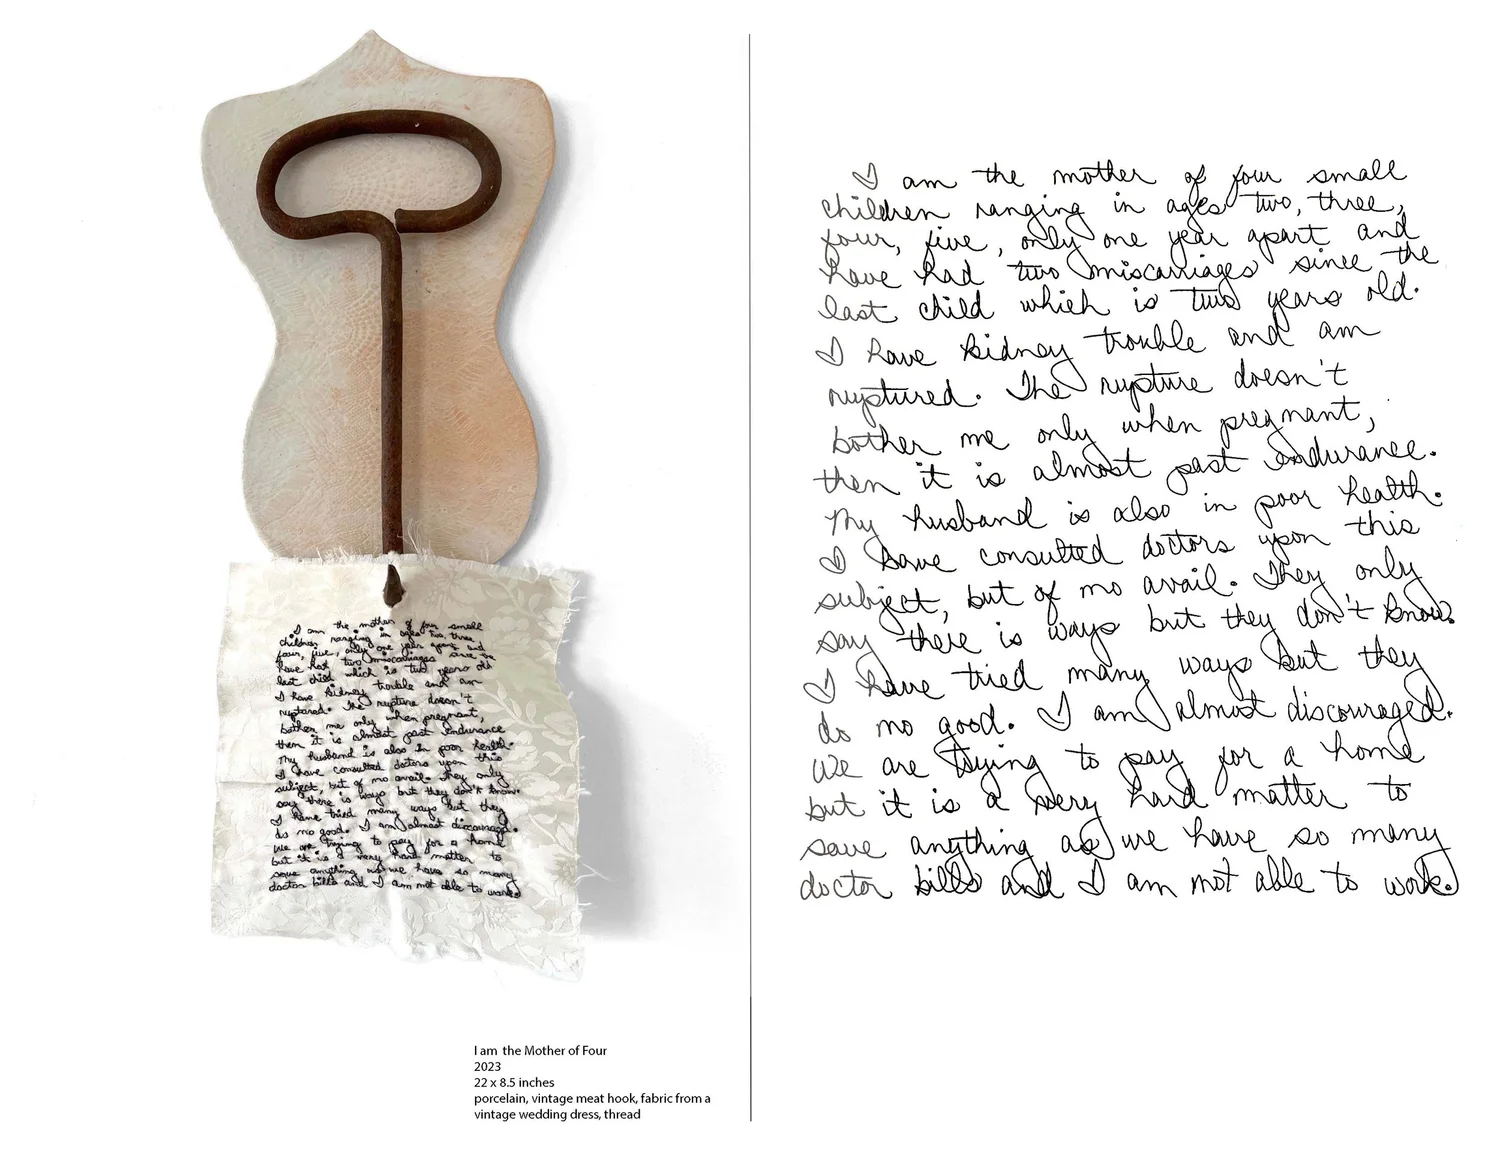 I am the mother of four small
children ranging in ages two, three
four, five, only one year apart and
have had two miscarriages since the
last child which is two years old
I have kidney trouble and am
ruptured. The rupture doesn't
bother me only when pregnant,
then it is almost past endurance
My husband is also in poor health.
I have consulted doctors upon this
subject, but of no avail. They only
say there is ways but they don't know.
I have tried many ways but they
do no good. I am almost discouraged.
We are trying to pay for a home
but it is a very hard matter to
save anything as we have so many
doctor bills and I am not able to work.
I am the Mother of Four
2023
22 x 8.5 inches
porcelain, vintage meat hook, fabric from a
vintage wedding dress, thread
I am the mother of four small
children ranging in ages two, three,
four, five, only one year apart and
have had two miscarriages since the
last child which is two years old.
I have kidney trouble and am
ruptured. The rupture doesn't
bother me only when pregnant,
then it is almost past endurance.
My husband is also in poor health.
I have consulted doctors upon this
subject, but of no avail. They only
say there is ways but they don't know.
I have tried many ways but they
do no good. I am almost discouraged.
We are trying to pay for a home
but it is a very hard matter to
save anything as we have so many
doctor bills and I am not able to work.